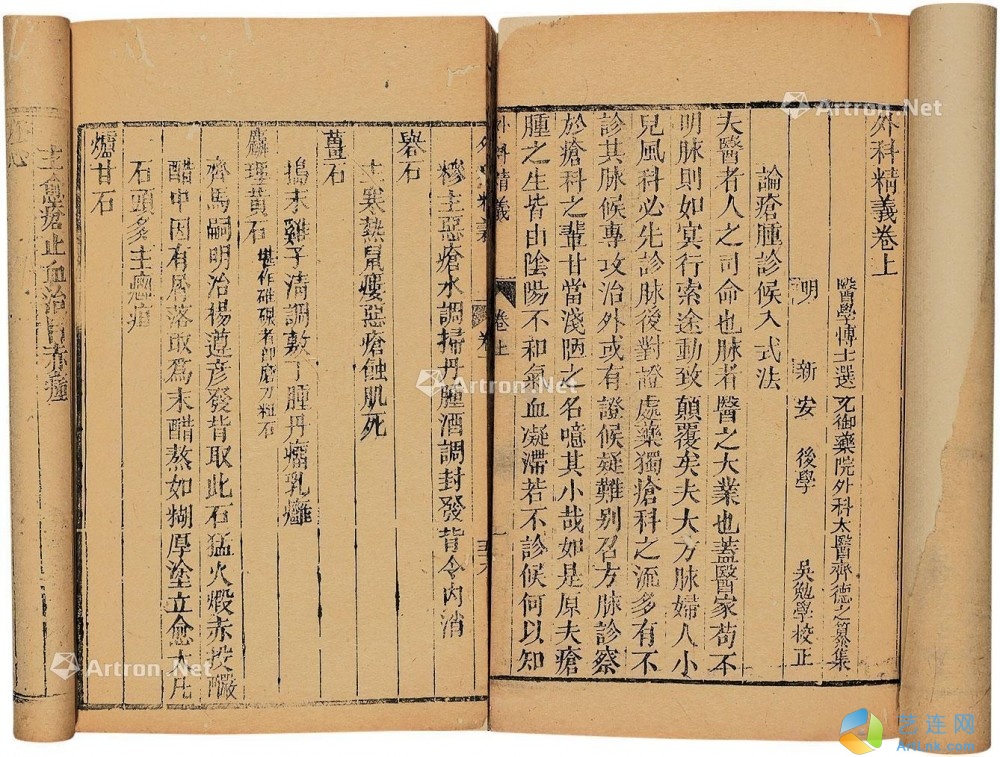 外科精義卷上
醫學博士選 充御藥院外科太醫齊德之纂集
明 新 安 後學 吳勉學校正
論瘡腫診候入式法
夫醫者人之司命也脉者醫之大業也蓋醫家苟不
明脉則如冥行索途動致顛覆矣夫大方脉婦人小
兒風科必先診脉後對證處藥獨瘡科之流多有不
診其脉候專攻治外或有證候疑難别召方脉診察
於瘡科之輩甘當淺陋之名噫其小哉如是原夫瘡
腫之生皆由陰陽不和氣血凝滯若不診候何以知
外科精義
卷上
一
糝主惡瘡水調掃丹腫酒調封發背令内消
礜石
主寒熱鼠瘻惡瘡蝕肌死
薑石
搗末雞子清調敷丁腫丹瘤乳癰
麤理黄石 堪作碓磑者即磨刀粗石
齊馬嗣明治楊遵彦發背取此石猛火煅赤投釅
醋中因有屑落取爲末醋熬如糊厚塗立愈大凡
石頭多主癰疽
爐甘石
主愈瘡止血治
Artron.Net
Artron.Net
Artron.Net
Artron.Net
艺连网